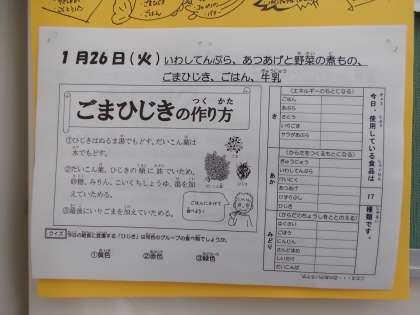 1月26日（火）いわしてんぷら、あつあげと野菜の煮もの、
ごまひじき、ごはん、牛乳
ごまひじきの作り方
つく かた
①ひじきはぬるま湯でもどす。だいこん葉は
水でもどす。
②だいこん葉、ひじきの順に油でいため、
砂糖、みりん、こいくちしょうゆ、湯を加
えていためる。
③最後にいりごまを加えていためる。
ごはんにまぜて
食べよう！
クイズ 今日の給食に登場する「ひじき」は何色のグループの食べ物でしょうか。
①黄色 ②赤色 ③緑色
今日、使用している食品は
17
種類です。
き
（エネルギーのもとになる）
ごはん
あぶら
さとう
いりごま
サラダあぶら
あか
（からだをつくるもとになる）
ぎゅうにゅう
いわしてんぷら
あつあげ
ひじき
みどり
（からだのちょうしをととのえる）
はくさい
ごぼう
にんじん
しいたけ
だいこんば